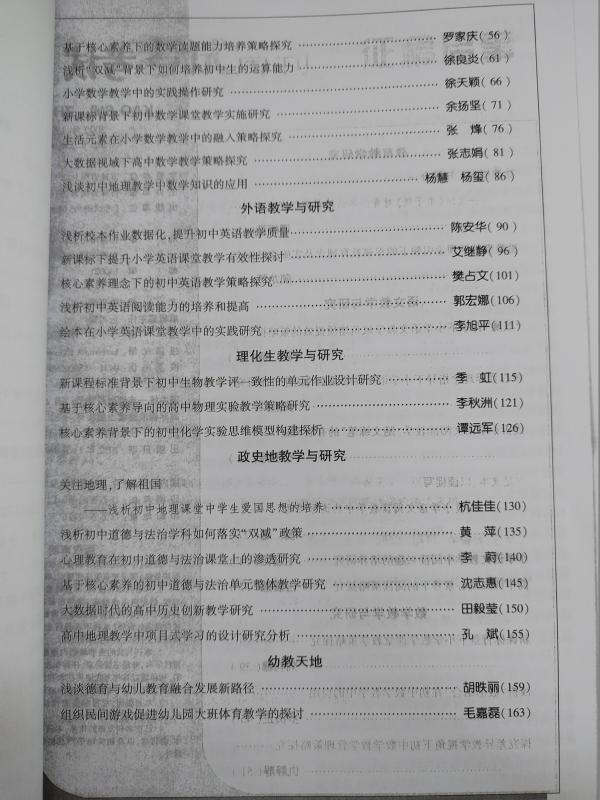 基于核心素养下的数学读题能力培养策略探究 罗家庆(56)
浅析“双减”背景下如何培养初中生的运算能力 徐良炎(61)
小学数学教学中的实践操作研究 徐天颖(66)
新课标背景下初中数学课堂教学实施研究 余扬坚(71)
生活元素在小学数学教学中的融入策略探究 张烽(76)
大数据视域下高中数学教学策略探究 张志娟(81)
浅谈初中地理教学中数学知识的应用 杨慧 杨玺(86)
外语教学与研究
浅析校本作业数据化,提升初中英语教学质量 陈安华(90)
新课标下提升小学英语课堂教学有效性探讨 艾继静(96)
核心素养理念下的初中英语教学策略探究 樊占文(101)
浅析初中英语阅读能力的培养和提高 郭宏娜(106)
绘本在小学英语课堂教学中的实践研究 李旭平(111)
理化生教学与研究
新课程标准背景下初中生物教学评一致性的单元作业设计研究 季虹(115)
基于核心素养导向的高中物理实验教学策略研究 李秋洲(121)
核心素养背景下的初中化学实验思维模型构建探析 谭远军(126)
政史地教学与研究
关注地理,了解祖国
——浅析初中地理课堂中学生爱国思想的培养 杭佳佳(130)
浅析初中道德与法治学科如何落实“双减”政策 黄萍(135)
心理教育在初中道德与法治课堂上的渗透研究 李蔚(140)
基于核心素养的初中道德与法治单元整体教学研究 沈志惠(145)
大数据时代的高中历史创新教学研究 田毅莹(150)
高中地理教学中项目式学习的设计研究分析 孔斌(155)
幼教天地
浅谈德育与幼儿教育融合发展新路径 胡昳丽(159)
组织民间游戏促进幼儿园大班体育教学的探讨 毛嘉磊(163)